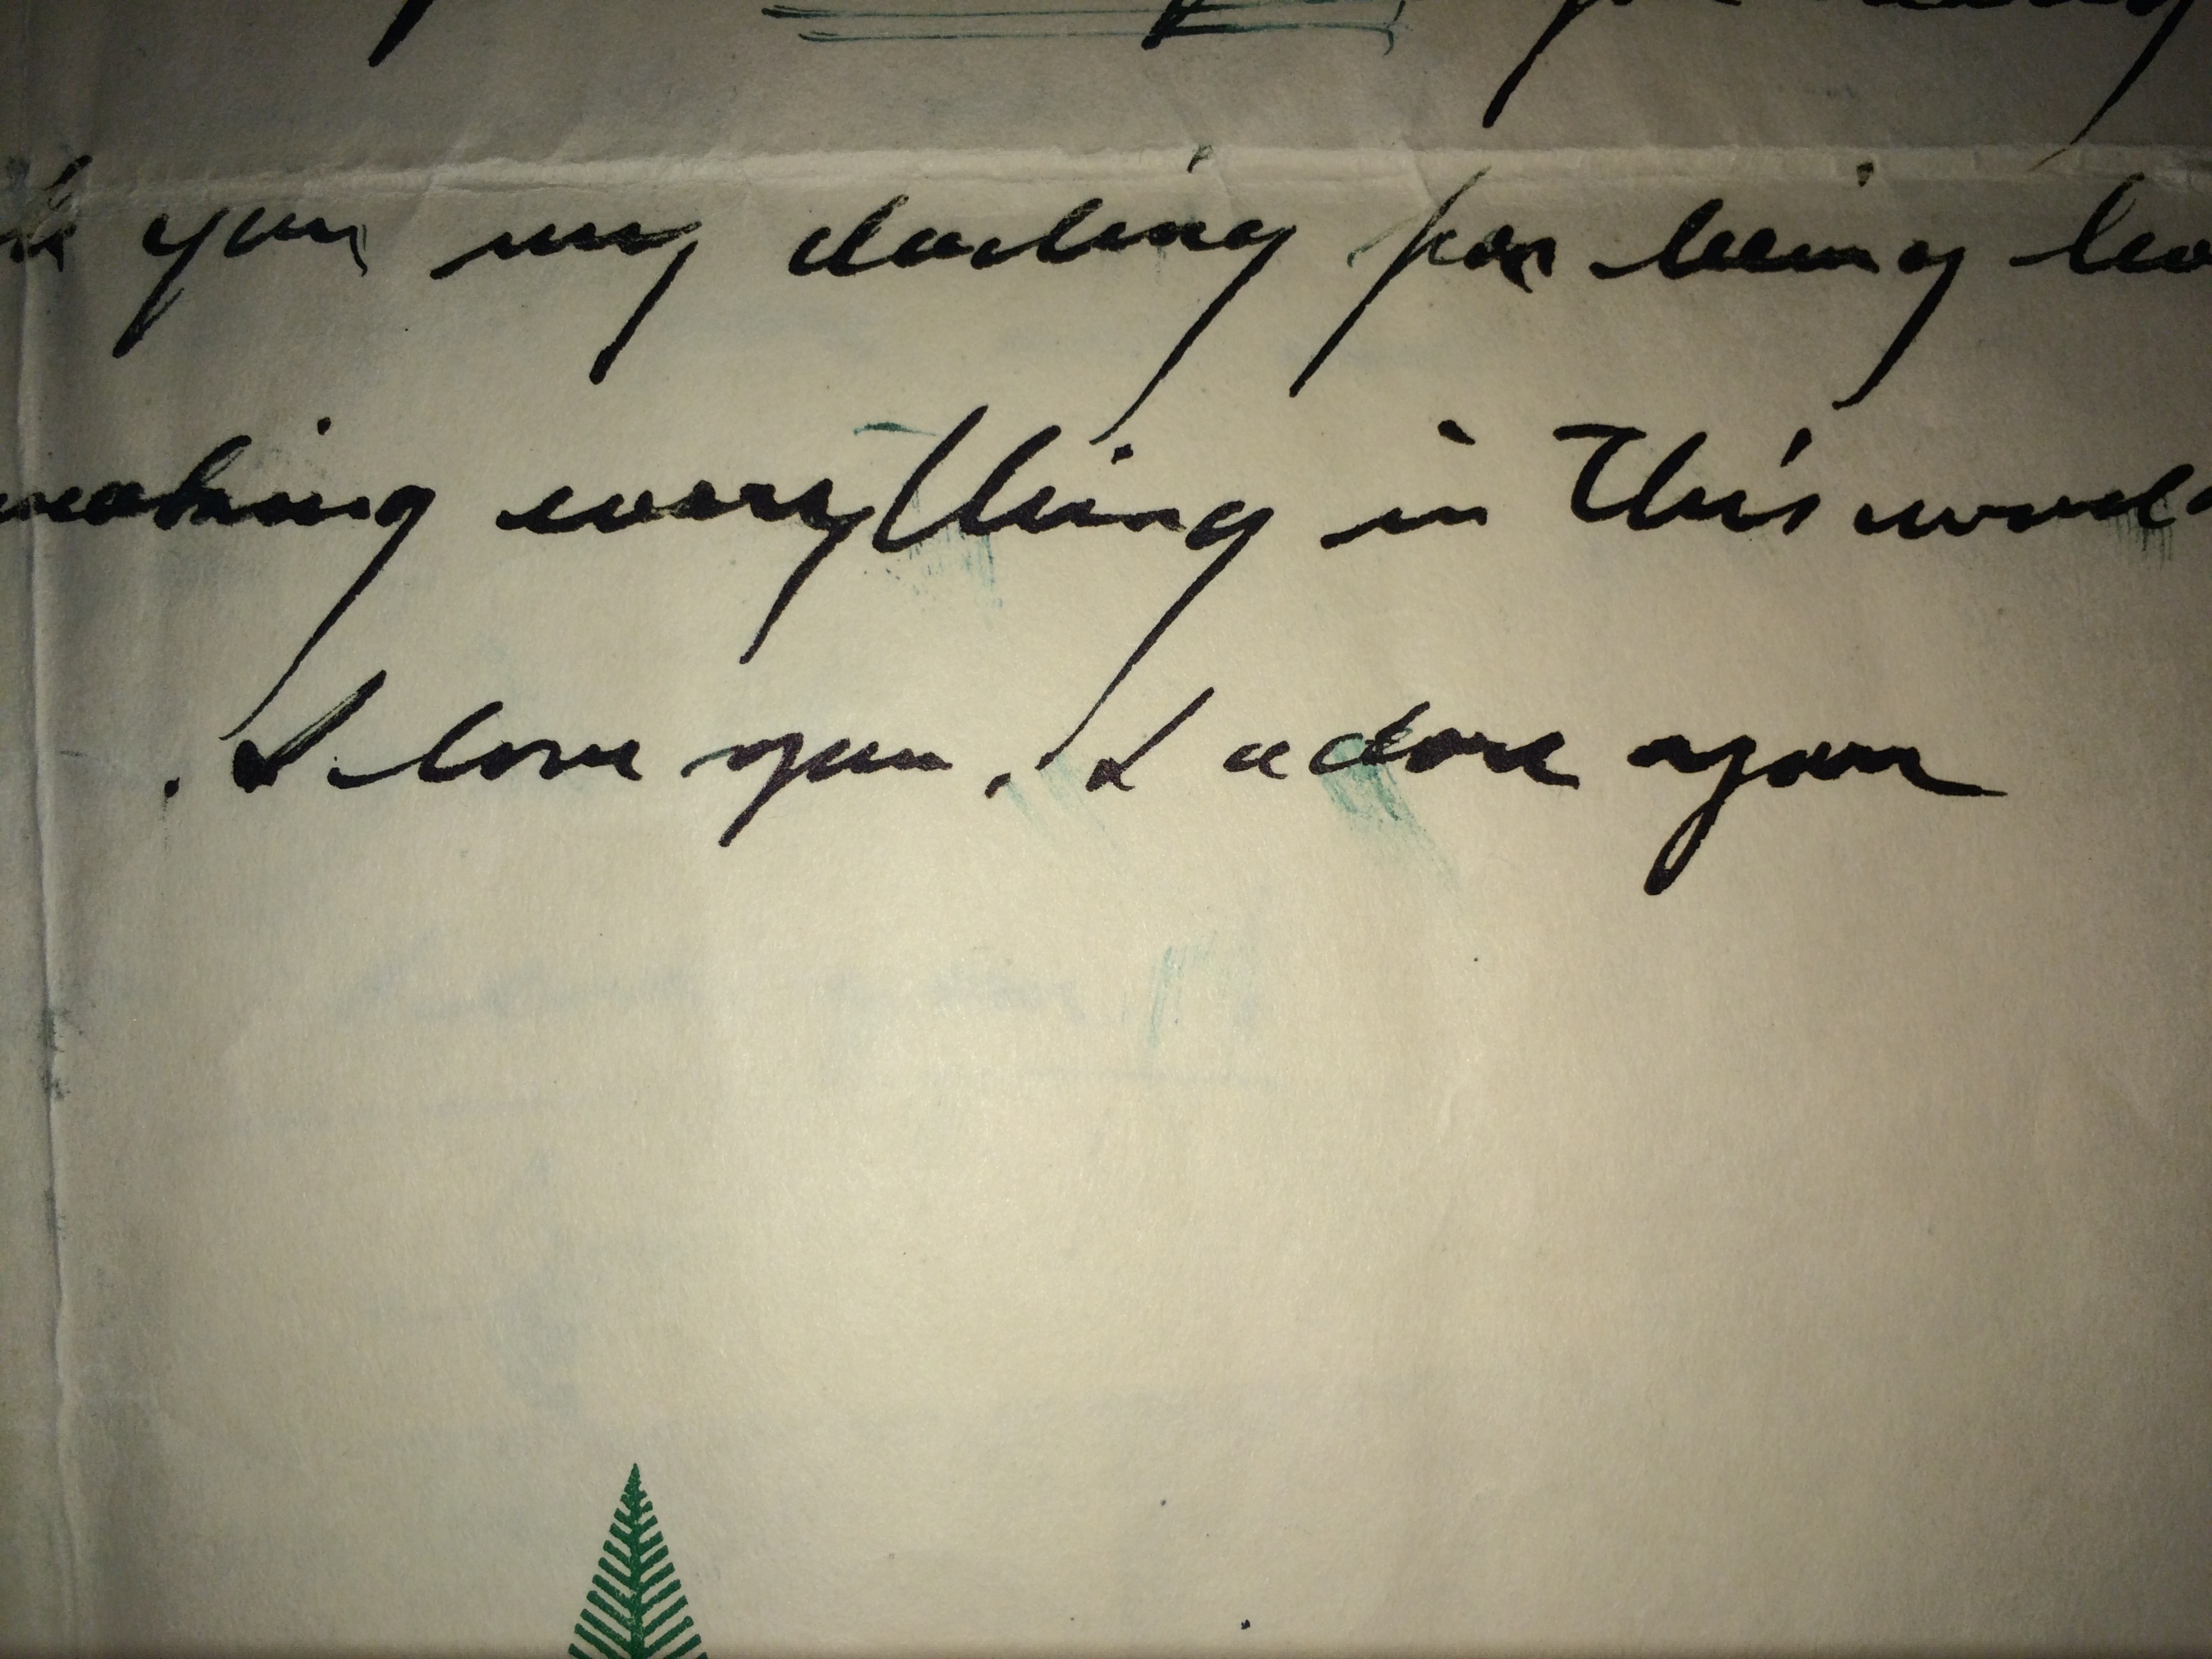 you my darling for being
making everything in this world
. I love you. I adore you